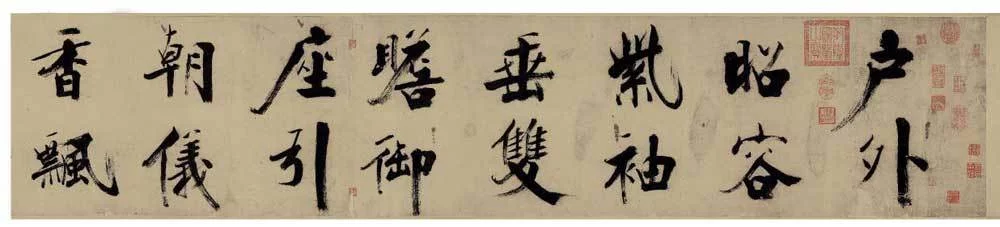 户外
昭容
紫袖
垂雙
瞻御
座引
朝儀
香飄